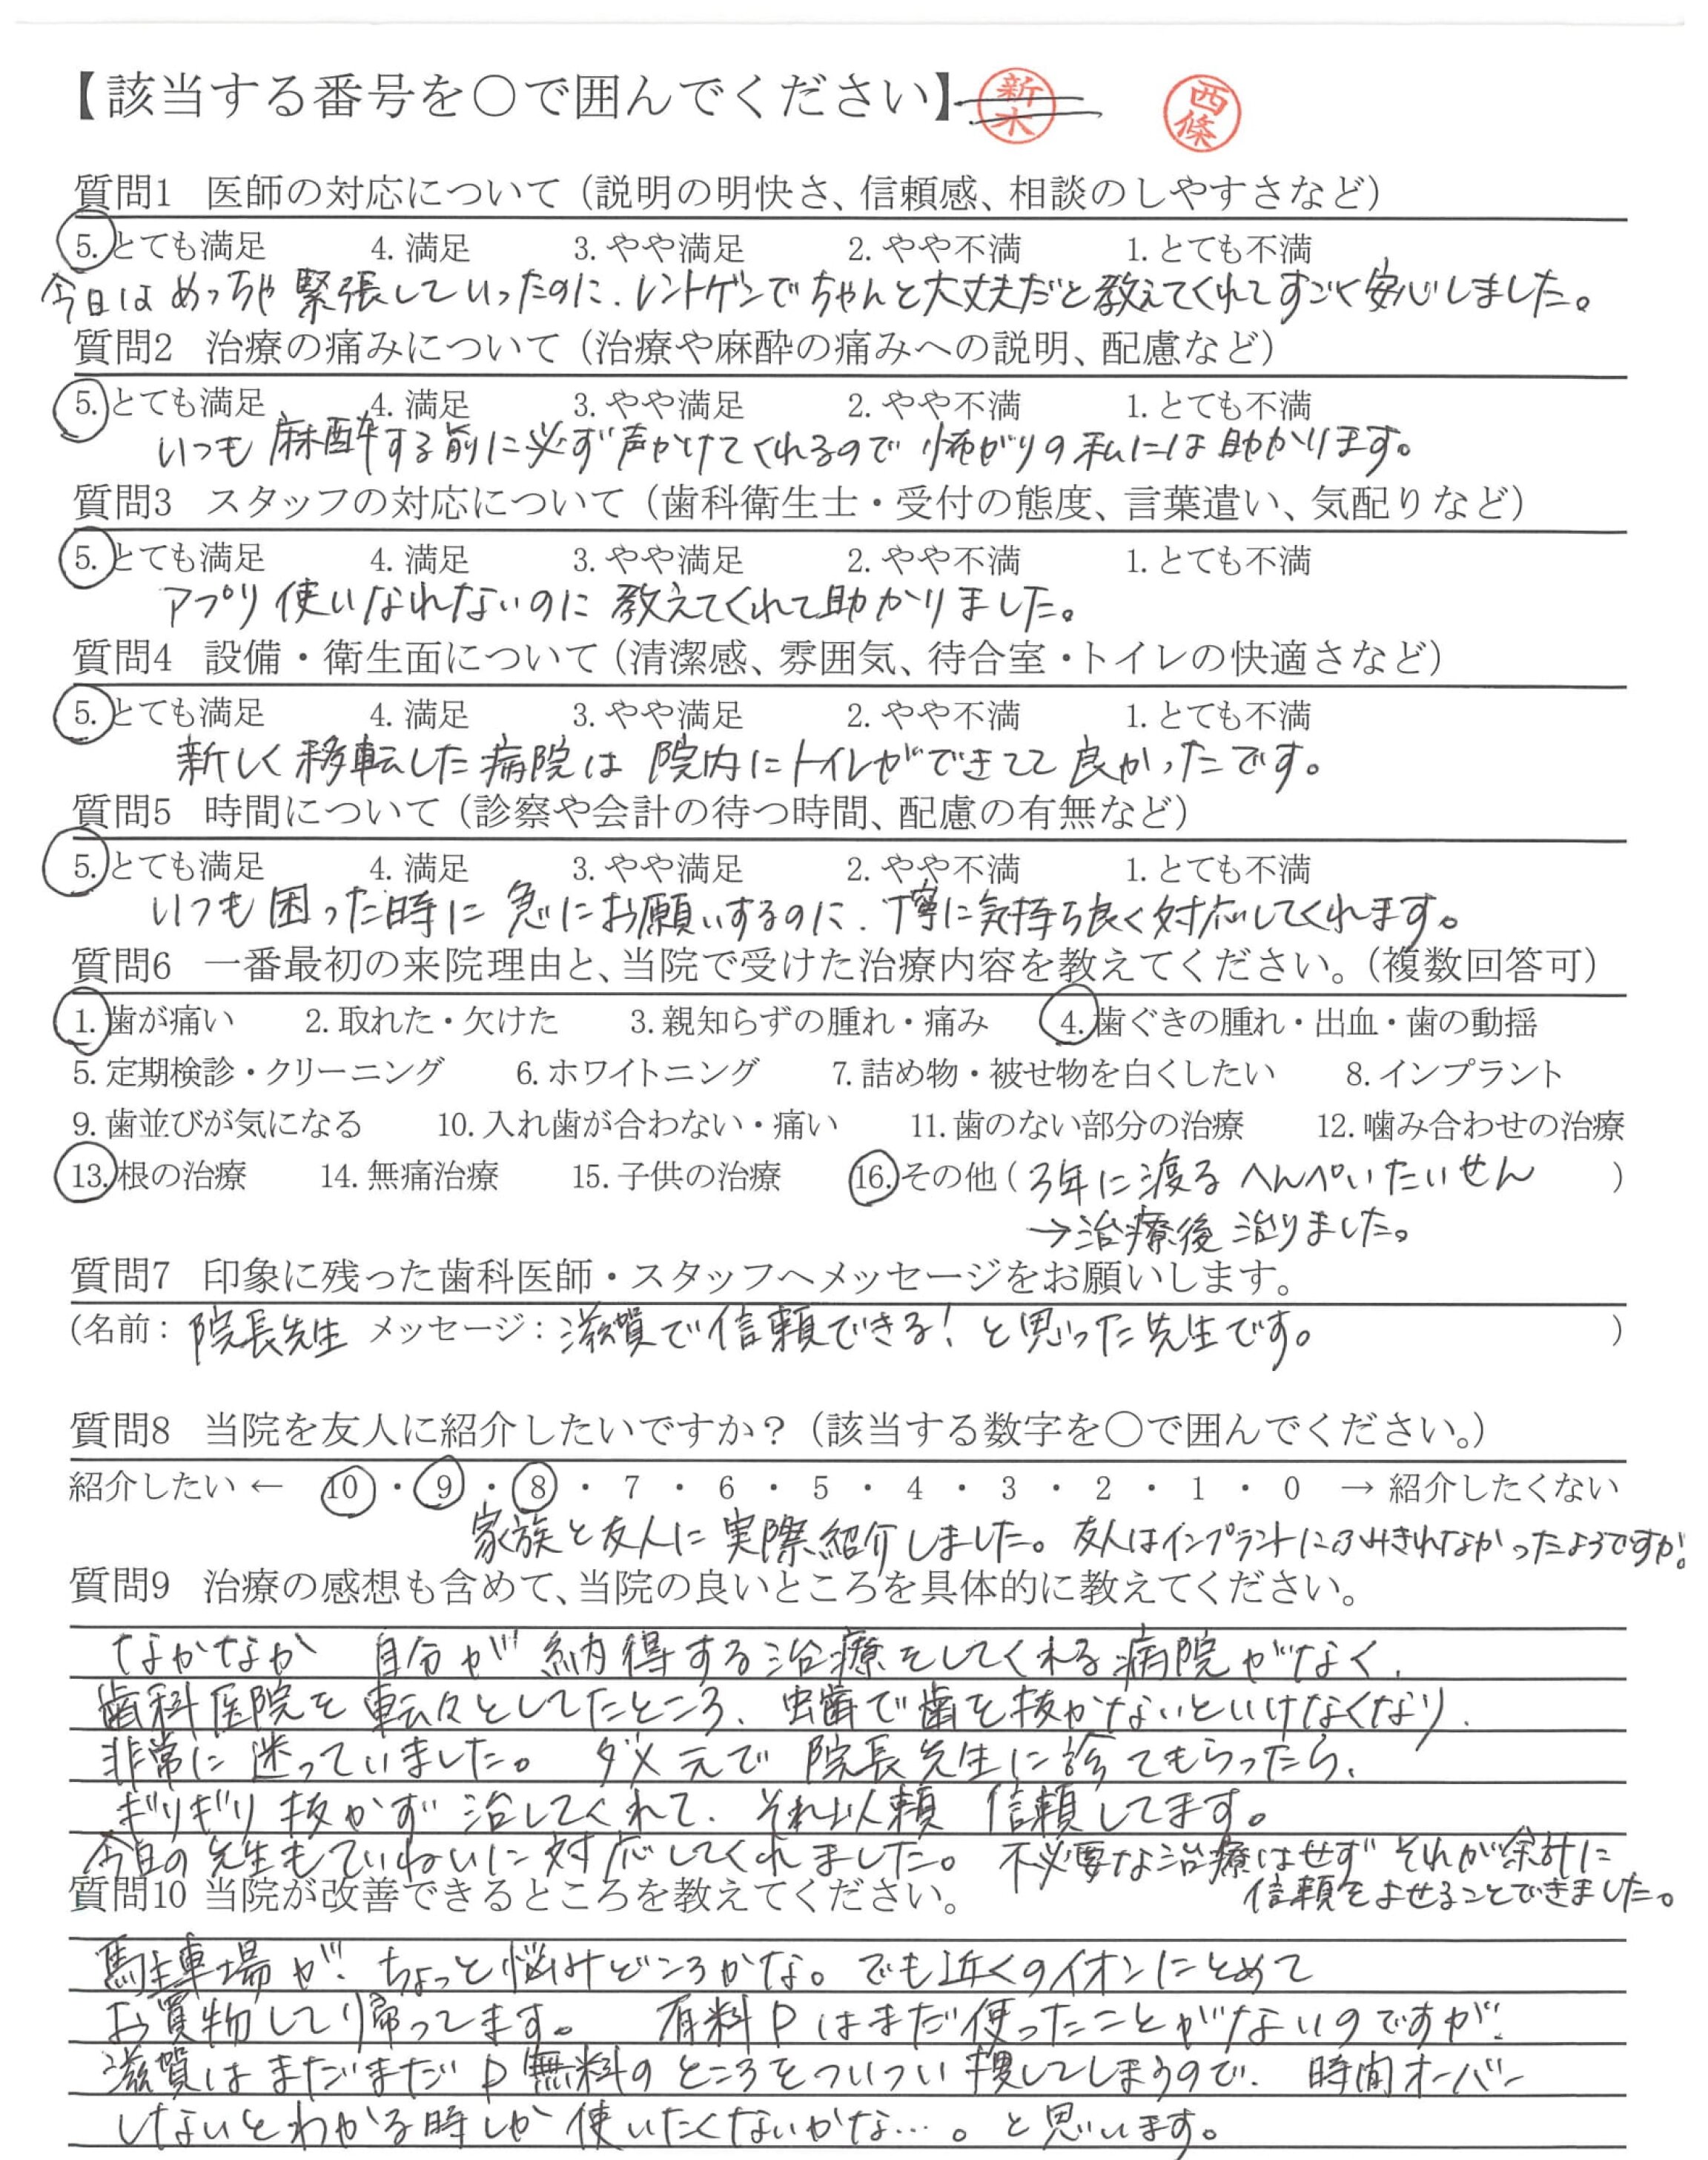 【該当する番号を○で囲んでください】 新木 西條
質問1 医師の対応について（説明の明快さ、信頼感、相談のしやすさなど）
5. とても満足 4. 満足 3. やや満足 2. やや不満 1. とても不満
今日はめっちゃ緊張していったのに、レントゲンでちゃんと大丈夫だと教えてくれてすごく安心しました。
質問2 治療の痛みについて（治療や麻酔の痛みへの説明、配慮など）
5. とても満足 4. 満足 3. やや満足 2. やや不満 1. とても不満
いつも麻酔する前に必ず声かけてくれるので怖がりの私には助かります。
質問3 スタッフの対応について（歯科衛生士・受付の態度、言葉遣い、気配りなど）
5. とても満足 4. 満足 3. やや満足 2. やや不満 1. とても不満
アプリ使いなれないのに教えてくれて助かりました。
質問4 設備・衛生面について（清潔感、雰囲気、待合室・トイレの快適さなど）
5. とても満足 4. 満足 3. やや満足 2. やや不満 1. とても不満
新しく移転した病院は院内にトイレができてて良かったです。
質問5 時間について（診察や会計の待つ時間、配慮の有無など）
5. とても満足 4. 満足 3. やや満足 2. やや不満 1. とても不満
いつも困った時に急にお願いするのに、丁寧に気持ち良く対応してくれます。
質問6 一番最初の来院理由と、当院で受けた治療内容を教えてください。（複数回答可）
1. 歯が痛い 2. 取れた・欠けた 3. 親知らずの腫れ・痛み 4. 歯ぐきの腫れ・出血・歯の動揺
5. 定期検診・クリーニング 6. ホワイトニング 7. 詰め物・被せ物を白くしたい 8. インプラント
9. 歯並びが気になる 10. 入れ歯が合わない・痛い 11. 歯のない部分の治療 12. 噛み合わせの治療
13. 根の治療 14. 無痛治療 15. 子供の治療 16. その他（3年に渡るへんぺいたいせん ）
→治療後治りました。
質問7 印象に残った歯科医師・スタッフへメッセージをお願いします。
(名前：院長先生 メッセージ：滋賀で信頼できる！と思った先生です。 )
質問8 当院を友人に紹介したいですか？（該当する数字を○で囲んでください。）
紹介したい ← 10 ・ 9 ・ 8 ・ 7 ・ 6 ・ 5 ・ 4 ・ 3 ・ 2 ・ 1 ・ 0 → 紹介したくない
家族と友人に実際紹介しました。友人はインプラントにふみきれなかったようですが。
質問9 治療の感想も含めて、当院の良いところを具体的に教えてください。
なかなか 自分が納得する治療をしてくれる病院がなく、
歯科医院を転々としてたところ、虫歯で歯を抜かないといけなくなり、
非常に迷っていました。ダメ元で院長先生に診てもらったら、
ギリギリ抜かず治してくれて、それ以頼 信頼してます。
今日の先生もていねいに対応してくれました。不必要な治療はせずそれが余計に
信頼をよせることできました。
質問10 当院が改善できるところを教えてください。
駐車場が、ちょっと悩みどころかな。でも近くのイオンにとめて
お買物して帰ってます。 有料Pはまだ使ったことがないのですが、
滋賀はまだまだP無料のところをついつい捜してしまうので、時間オーバー
しないとわかる時しか使いたくないかな…。と思います。